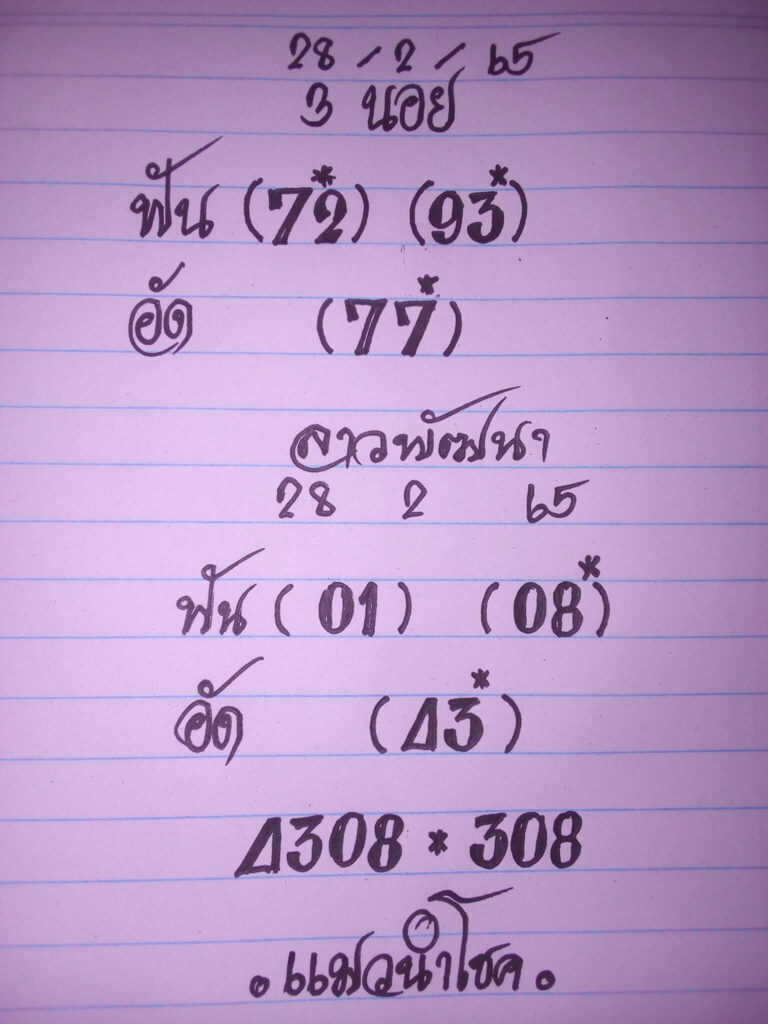 28 / 2 / 65
3 น้อย
ฟัน (72*) (93*)
อัด (77*)
ลาวพัฒนา
28 2 65
ฟัน (01) (08*)
อัด (43*)
4308 * 308
. แมวนำโชค .